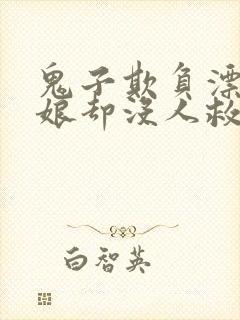 鬼子欺负漂
娘却没人救
白智英